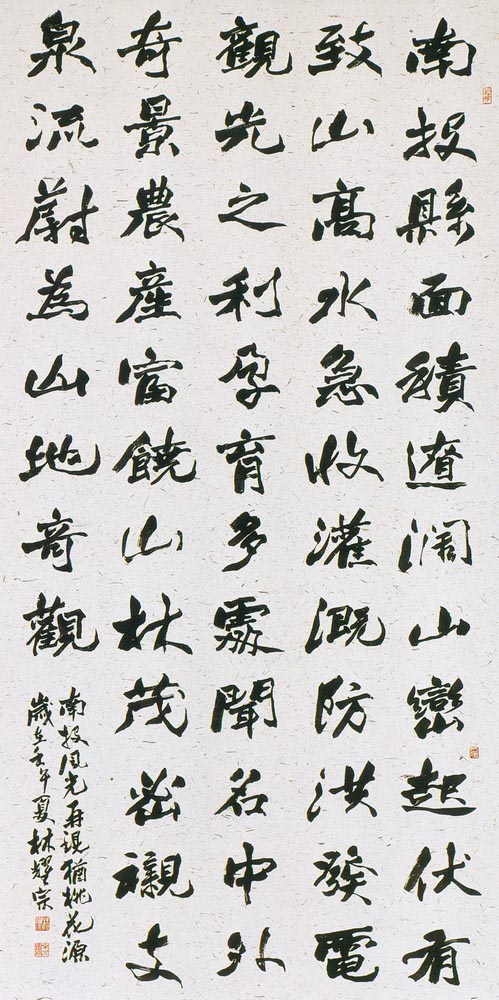 南投縣面積遼闊山巒起伏有
致山高水急收灌溉防洪發電
觀光之利孕育多處聞名中外
奇景農產富饒山林茂密襯支
泉流蔚為山地奇觀
南投風光再現猶桃花源
歲在壬午夏林耀宗